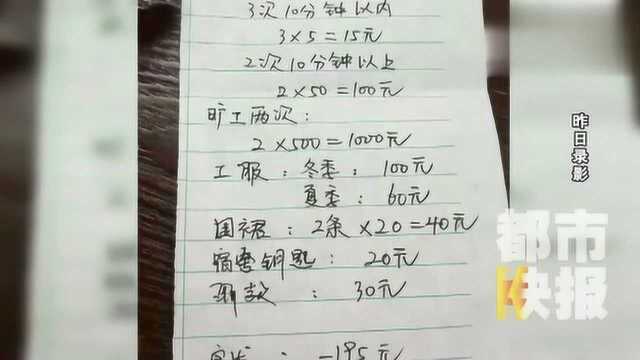 3次10分钟以内
3×5=15元
2次10分钟以上
2×50=100元
旷工两次：
2×500=1000元
工服：冬季：100元
夏季：60元
围裙：2条×20=40元
宿舍钥匙：20元
罚款：30元
实发：-195元
昨日录影
都市快报